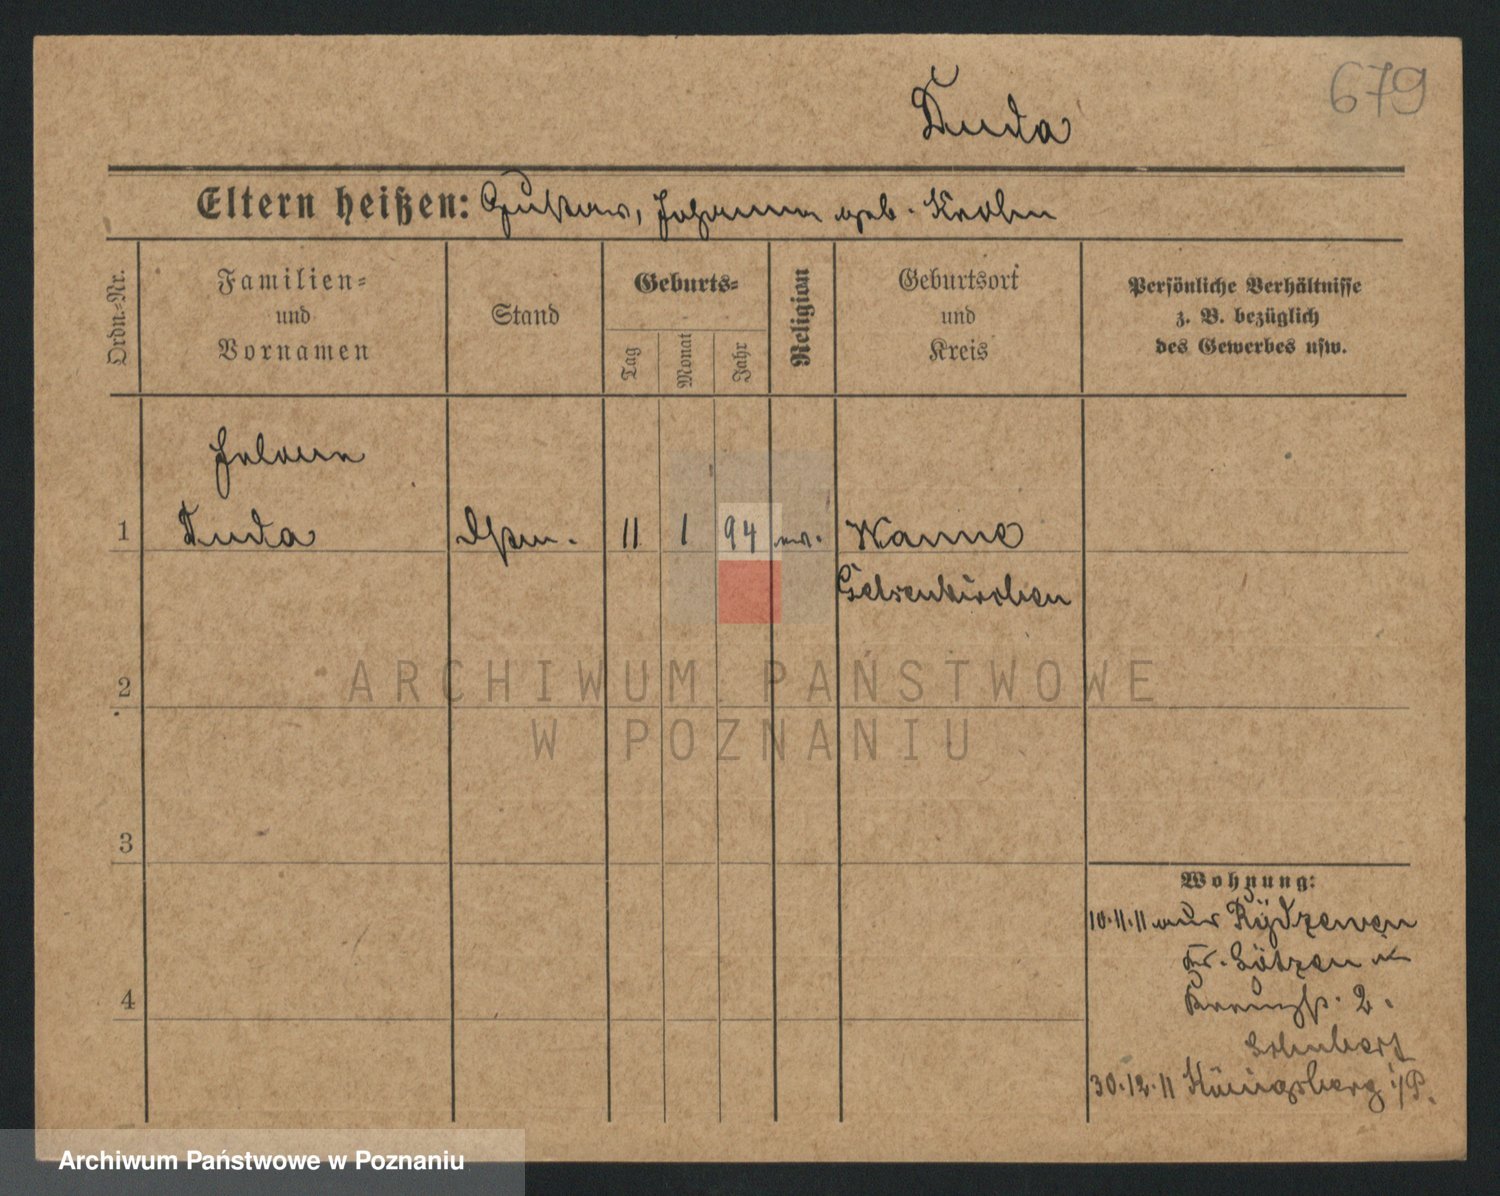 679
Duda
Eltern heißen: Gustav, Johanna geb. Krohn
Ordn.-Nr.
Familien-
und
Vornamen
Stand
Geburts-
Tag
Monat
Jahr
Religion
Geburtsort
und
Kreis
Persönliche Verhältnisse
z. B. bezüglich
des Gewerbes usw.
Helene
1 Duda 11 1 94 ev. Wanne
Gelsenkirchen
2
3
4
Wohnung:
10.11.11 aus Rydzewen
Kr. Lötzen
2.
Schubert
30.12.11 Königsberg i/P.
ARCHIWUM PAŃSTWOWE
W POZNANIU
Archiwum Państwowe w Poznaniu